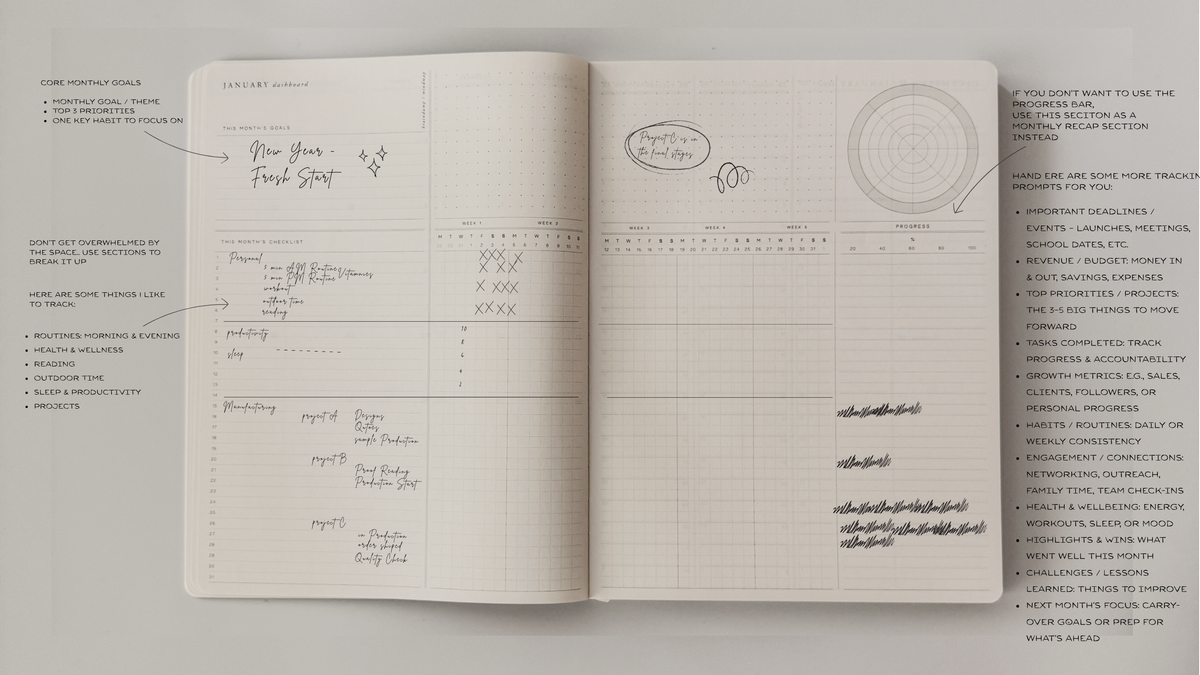 CORE MONTHLY GOALS
• MONTHLY GOAL / THEME
• TOP 3 PRIORITIES
• ONE KEY HABIT TO FOCUS ON
DON'T GET OVERWHELMED BY
THE SPACE.. USE SECTIONS TO
BREAK IT UP
HERE ARE SOME THINGS I LIKE
TO TRACK:
• ROUTINES: MORNING & EVENING
• HEALTH & WELLNESS
• READING
• OUTDOOR TIME
• SLEEP & PRODUCTIVITY
• PROJECTS
JANUARY dashboard
THIS MONTH'S GOALS
New Year -
Fresh Start
THIS MONTH'S CHECKLIST
WEEK 1 WEEK 2
M T W T F S S M T W T F S S
1 2 3 4 5 6 7 8 9 10 11
Personal
5 min AM Routine
5 min PM Routine Vitamnies
workout
outdoor time
reading
productivity
sleep
10
8
6
4
2
Manufacturing
project A Designs
Qutoes
sample Production
project B
Proof Reading
Production Start
project C
in Production
order shiped
Quality Check
Project C is in
the final stages
WEEK 3 WEEK 4 WEEK 5
M T W T F S S M T W T F S S M T W T F S S
12 13 14 15 16 17 18 19 20 21 22 23 24 25 26 27 28 29 30 31
PROGRESS
%
20 40 60 80 100
IF YOU DON'T WANT TO USE THE
PROGRESS BAR,
USE THIS SECITON AS A
MONTHLY RECAP SECTION
INSTEAD
HAND ERE ARE SOME MORE TRACKIN
PROMPTS FOR YOU:
• IMPORTANT DEADLINES /
EVENTS – LAUNCHES, MEETINGS,
SCHOOL DATES, ETC.
• REVENUE / BUDGET: MONEY IN
& OUT, SAVINGS, EXPENSES
• TOP PRIORITIES / PROJECTS:
THE 3–5 BIG THINGS TO MOVE
FORWARD
• TASKS COMPLETED: TRACK
PROGRESS & ACCOUNTABILITY
• GROWTH METRICS: E.G., SALES,
CLIENTS, FOLLOWERS, OR
PERSONAL PROGRESS
• HABITS / ROUTINES: DAILY OR
WEEKLY CONSISTENCY
• ENGAGEMENT / CONNECTIONS:
NETWORKING, OUTREACH,
FAMILY TIME, TEAM CHECK-INS
• HEALTH & WELLBEING: ENERGY,
WORKOUTS, SLEEP, OR MOOD
• HIGHLIGHTS & WINS: WHAT
WENT WELL THIS MONTH
• CHALLENGES / LESSONS
LEARNED: THINGS TO IMPROVE
• NEXT MONTH'S FOCUS: CARRY-
OVER GOALS OR PREP FOR
WHAT'S AHEAD